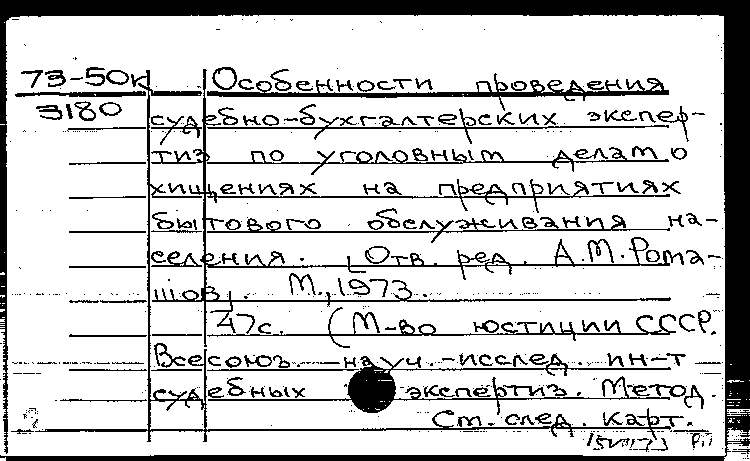 73-50к Особенности проведения
3180 судебно-бухгалтерских экспер-
тиз по уголовным делам о
хищениях на предприятиях
бытового обслуживания на-
селения. [Отв. ред. А.М. Рома-
шов]. М., 1973.
47с. (М-во юстиции СССР.
Всесоюз. науч.-исслед. ин-т
судебных экспертиз. Метод.
См. след. карт.